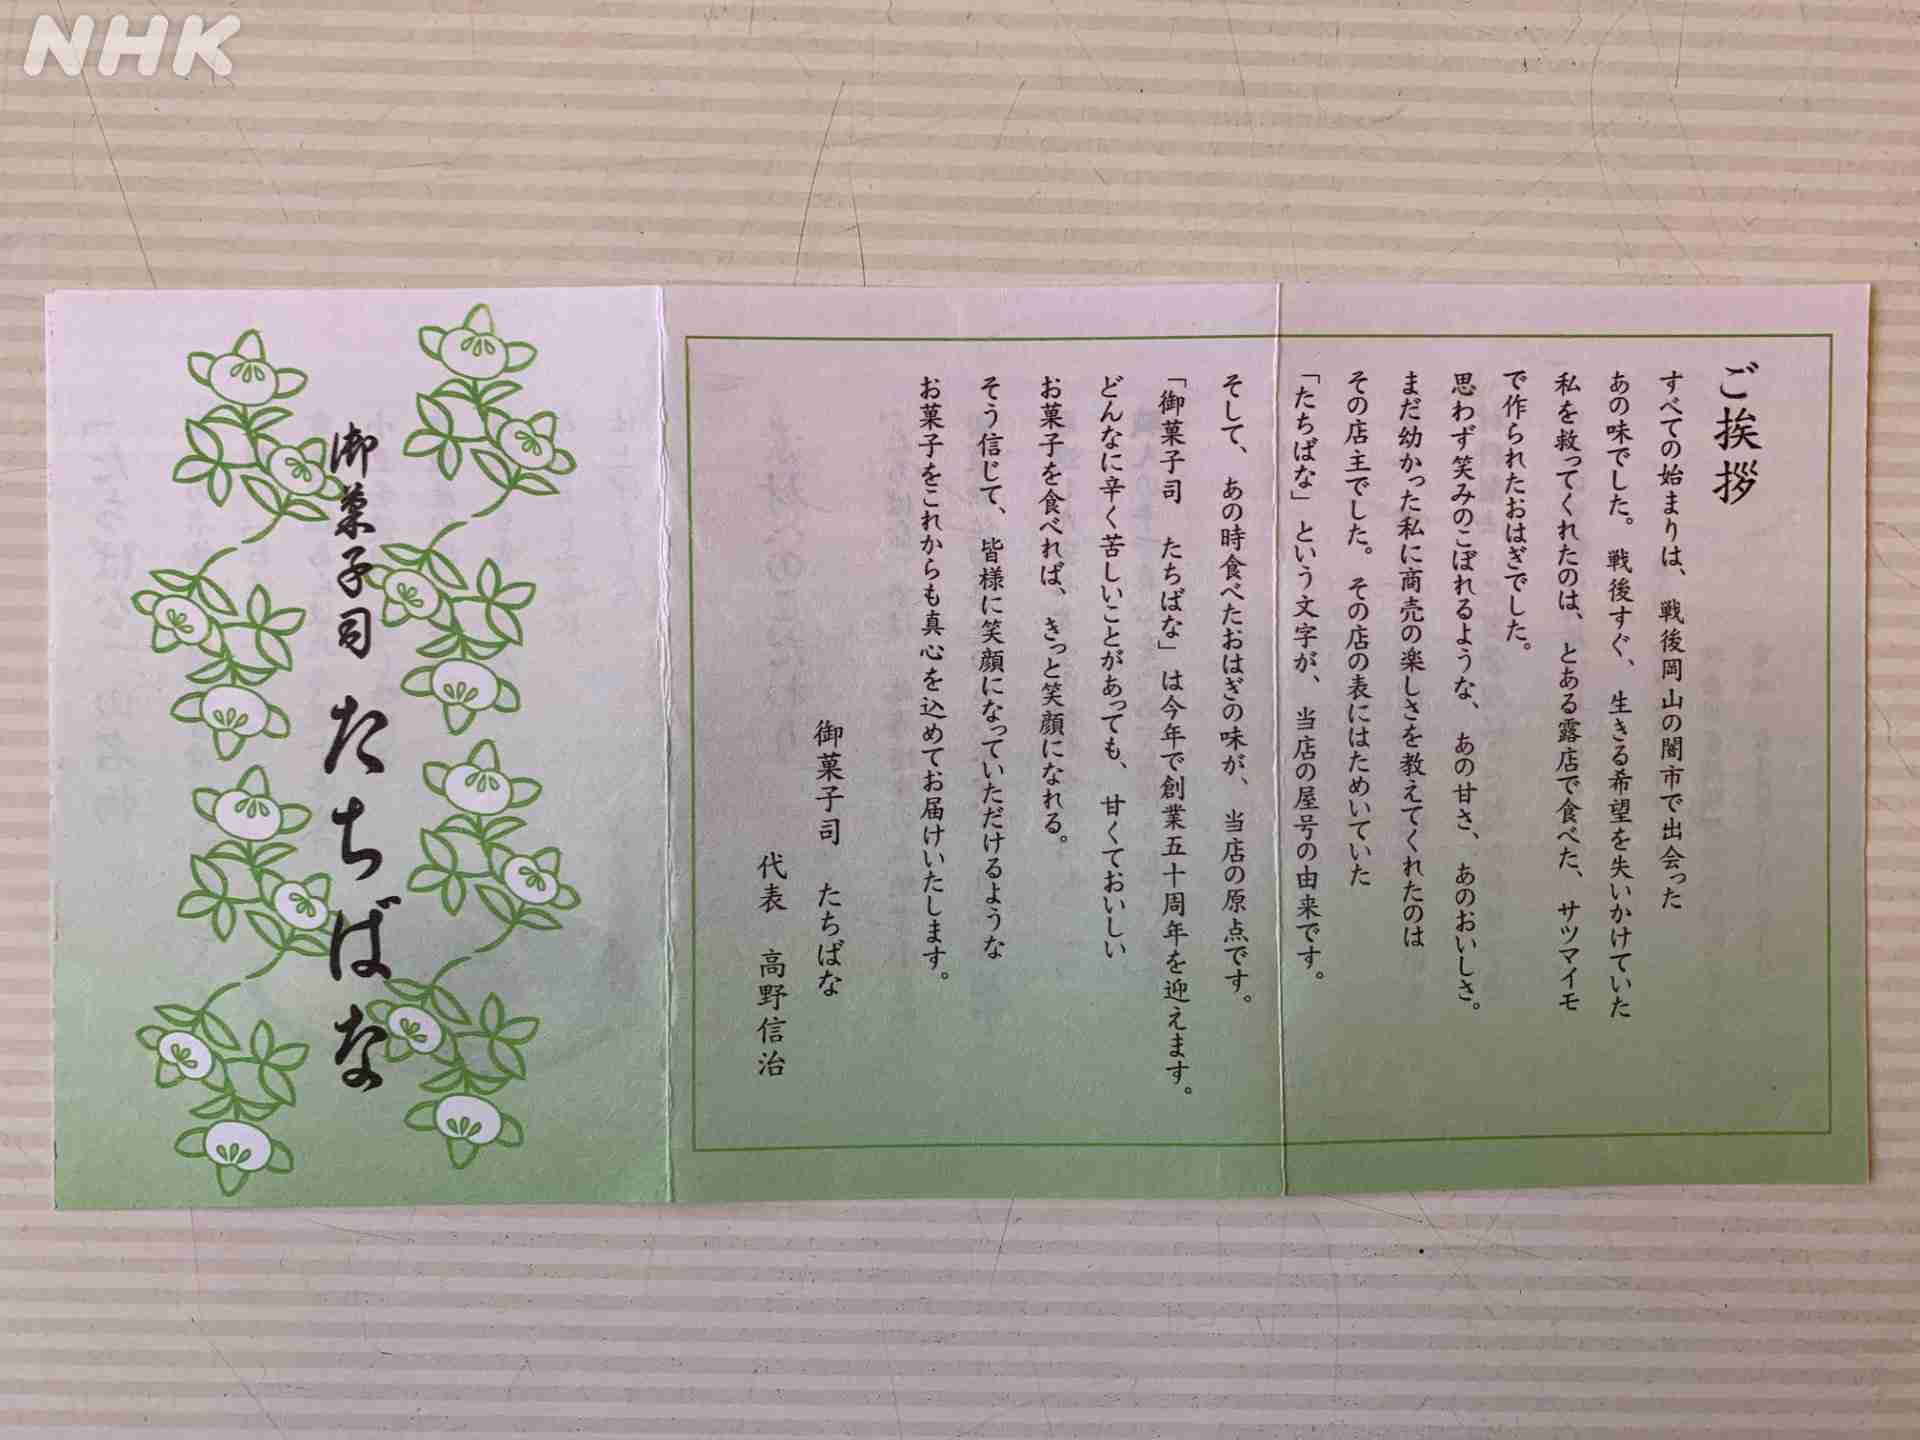 NHK
ご挨拶
すべての始まりは、戦後岡山の闇市で出会った
あの味でした。戦後すぐ、生きる希望を失いかけていた
私を救ってくれたのは、とある露店で食べた、サツマイモ
で作られたおはぎでした。
思わず笑みのこぼれるような、あの甘さ、あのおいしさ。
まだ幼かった私に商売の楽しさを教えてくれたのは
その店主でした。その店の表にはためいていた
「たちばな」という文字が、当店の屋号の由来です。
そして、あの時食べたおはぎの味が、当店の原点です。
「御菓子司 たちばな」は今年で創業五十周年を迎えます。
どんなに辛く苦しいことがあっても、甘くておいしい
お菓子を食べれば、きっと笑顔になれる。
そう信じて、皆様に笑顔になっていただけるような
お菓子をこれからも真心を込めてお届けいたします。
御菓子司 たちばな
代表 高野信治
御菓子司 たちばな